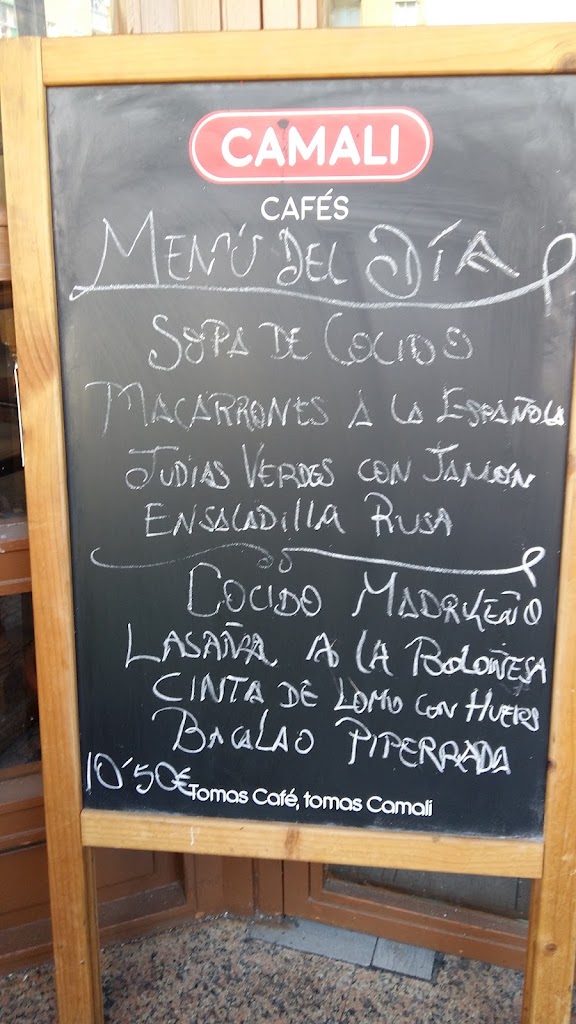 CAMALI
CAFÉS
MENÚ DEL DÍA
SOPA DE COCIDO
MACARRONES A LA ESPAÑOLA
JUDIAS VERDES CON JAMÓN
ENSALADILLA RUSA
COCIDO MADRILEÑO
LASAÑA A LA BOLOÑESA
CINTA DE LOMO CON HUEVOS
BACALAO PIPERRADA
10'50€
Tomas Café, tomas Camali